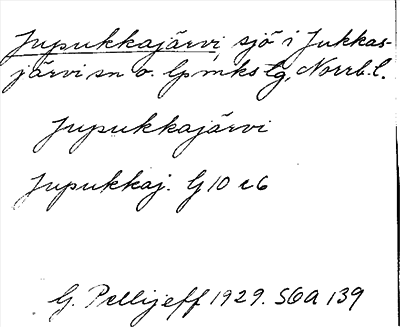 Jupukkajärvi, sjö i Jukkas-
järvi sn o. lpmks tg, Norrb. l.
Jupukkajärvi
Jupukkaj. G 10 c6
G. Pellijeff 1929. SOA 139